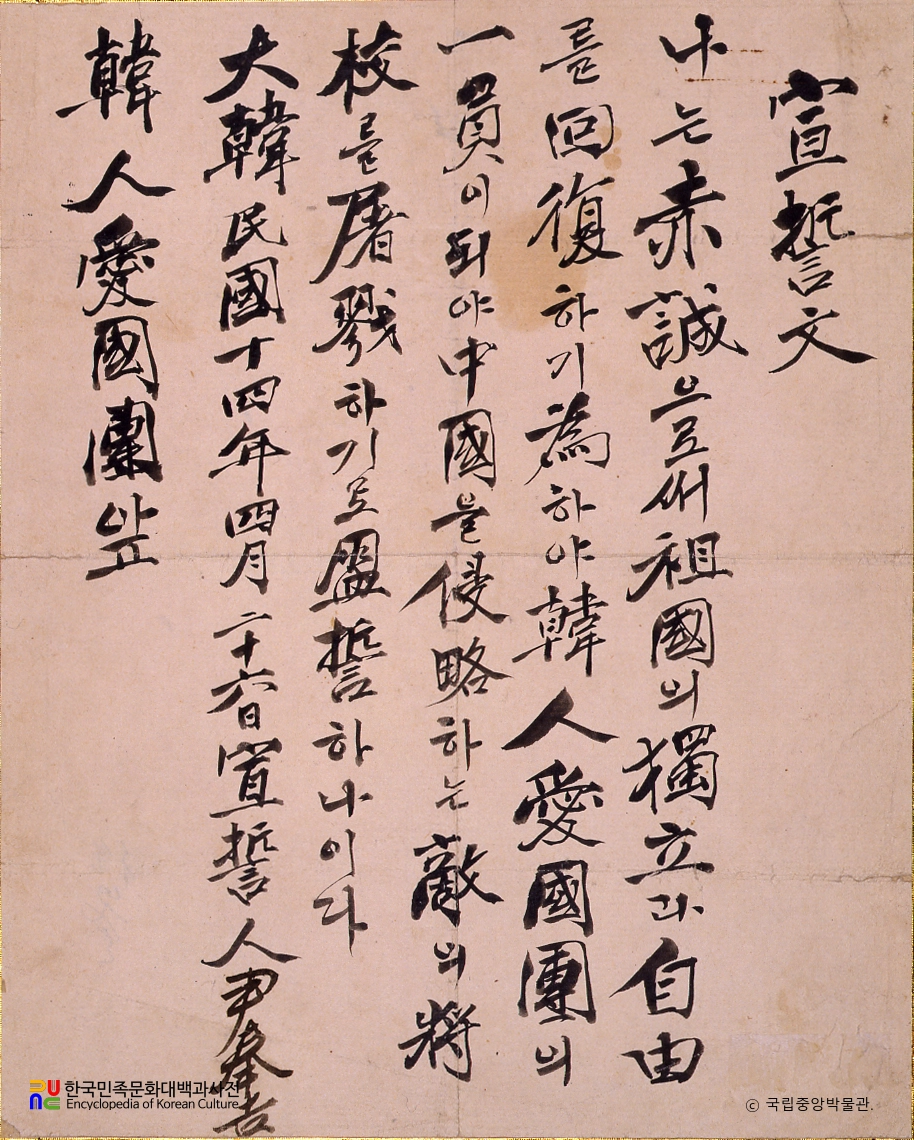 宣誓文
나는赤誠으로써祖國의獨立과自由
를回復하기爲하야韓人愛國團의
一員이되야中國을侵略하는敵의將
校를屠戮하기로盟誓하나이다
大韓民國十四年四月二十六日宣誓人尹奉吉
韓人愛國團앞
한국민족문화대백과사전
Encyclopedia of Korean Culture
© 국립중앙박물관.